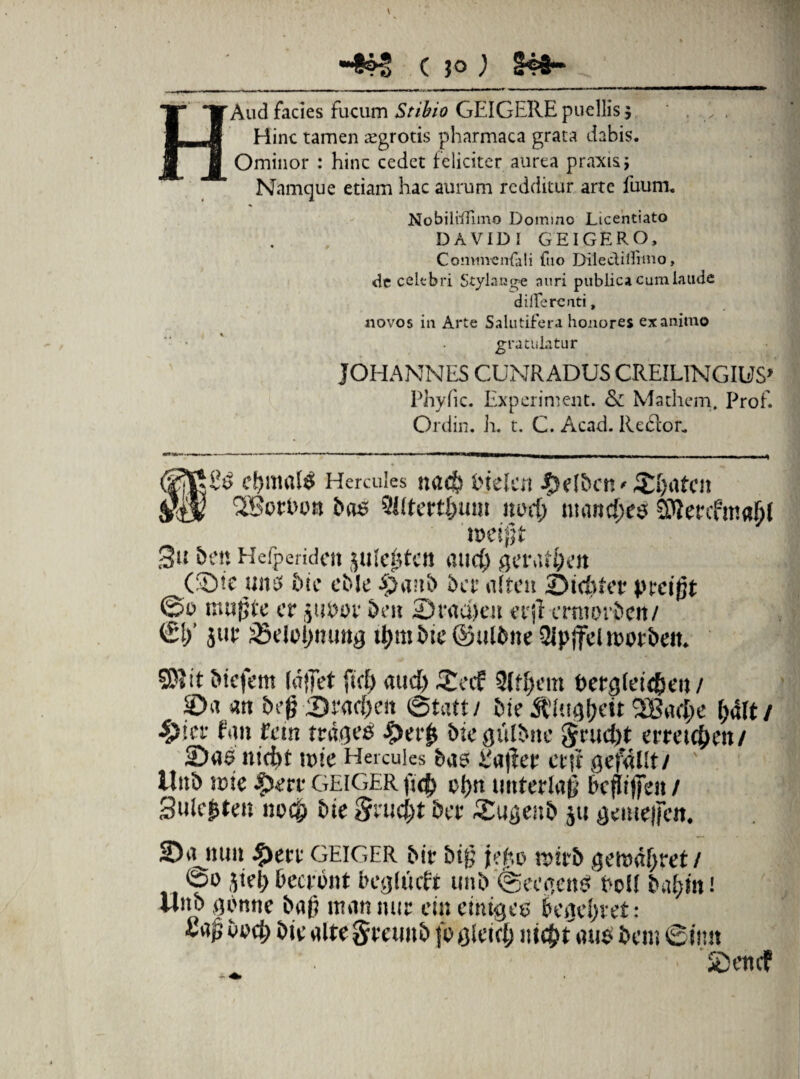 ( 30 )
HAud facies fucum Stibio GEIGERE puellis;
Hinc tamen ægrotis pharmaca grata dabis.
Ominor : hinc cedet feliciter aurea praxis;
Namque etiam hac aurum redditur arte ſuum.
Nobiliſſimo Domino Licentiato
DAVIDI GEIGERO,
Commenſali ſuo Dilectiſſimo,
de celebri Stylange auri publica cum laude
diſſerenti,
novos in Arte Salutifera honores ex animo
gratulatur
JOHANNES CUNRADUS CREILINGIUS,
Phyſic. Experiment. & Mathem. Prof.
Ordin. h. t. C. Acad. Rector.
ES ehmals Hercules nach vielen Helden-Thaten
Worvon das Alterthum noch manches Merckmahl
weißt
Zu den Heſperiden zuletzten auch gerathen
(Die uns die edle Hand der alten Dichter preißt
So mußte er zuvor den Drachen erſt ermorden/
Eh' zur Belohnung ihm die Güldne Aepffel worden.
Mit dieſem läſſet ſich auch Teck Althem vergleichen/
Da an deß Drachen Statt/ die Klugheit Wache hält/
Hier kan kein träges Hertz die güldne Frucht erreichen/
Das nicht wie Hercules das Laſter erſt gefällt/
Und wie Herr GEIGER ſich ohn unterlaß befliſſen/
Zuletzten noch die Frucht der Tugend zu genieſſen.
Da nun Herr GEIGER dir diß jetzo wird gewähret/
So zieh becrönt beglückt und Seegens voll dahin!
Und gönne daß man nur ein einiges begehret:
Laß doch die alte Freund ſo gleich nicht aus dem Sinn
Denck